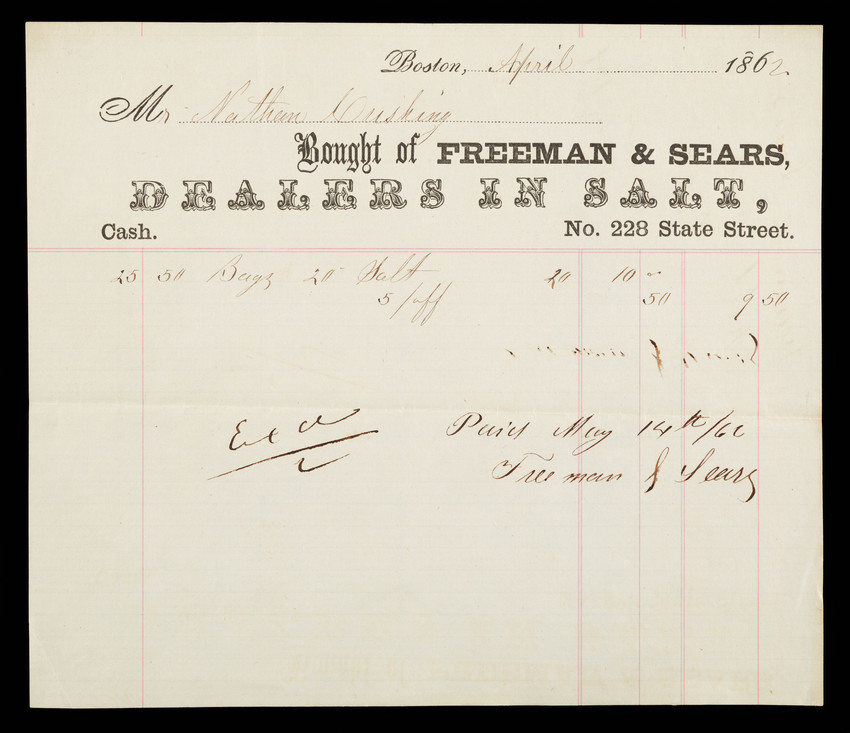 Boston, April 1862
Mr Nathan Cushing
Bought of FREEMAN & SEARS,
DEALERS IN SALT,
Cash. No. 228 State Street.
25 50 Bags 20 Salt 20 10 -
5/off 50 9 50
Paid May 14th/62
Freeman & Sears